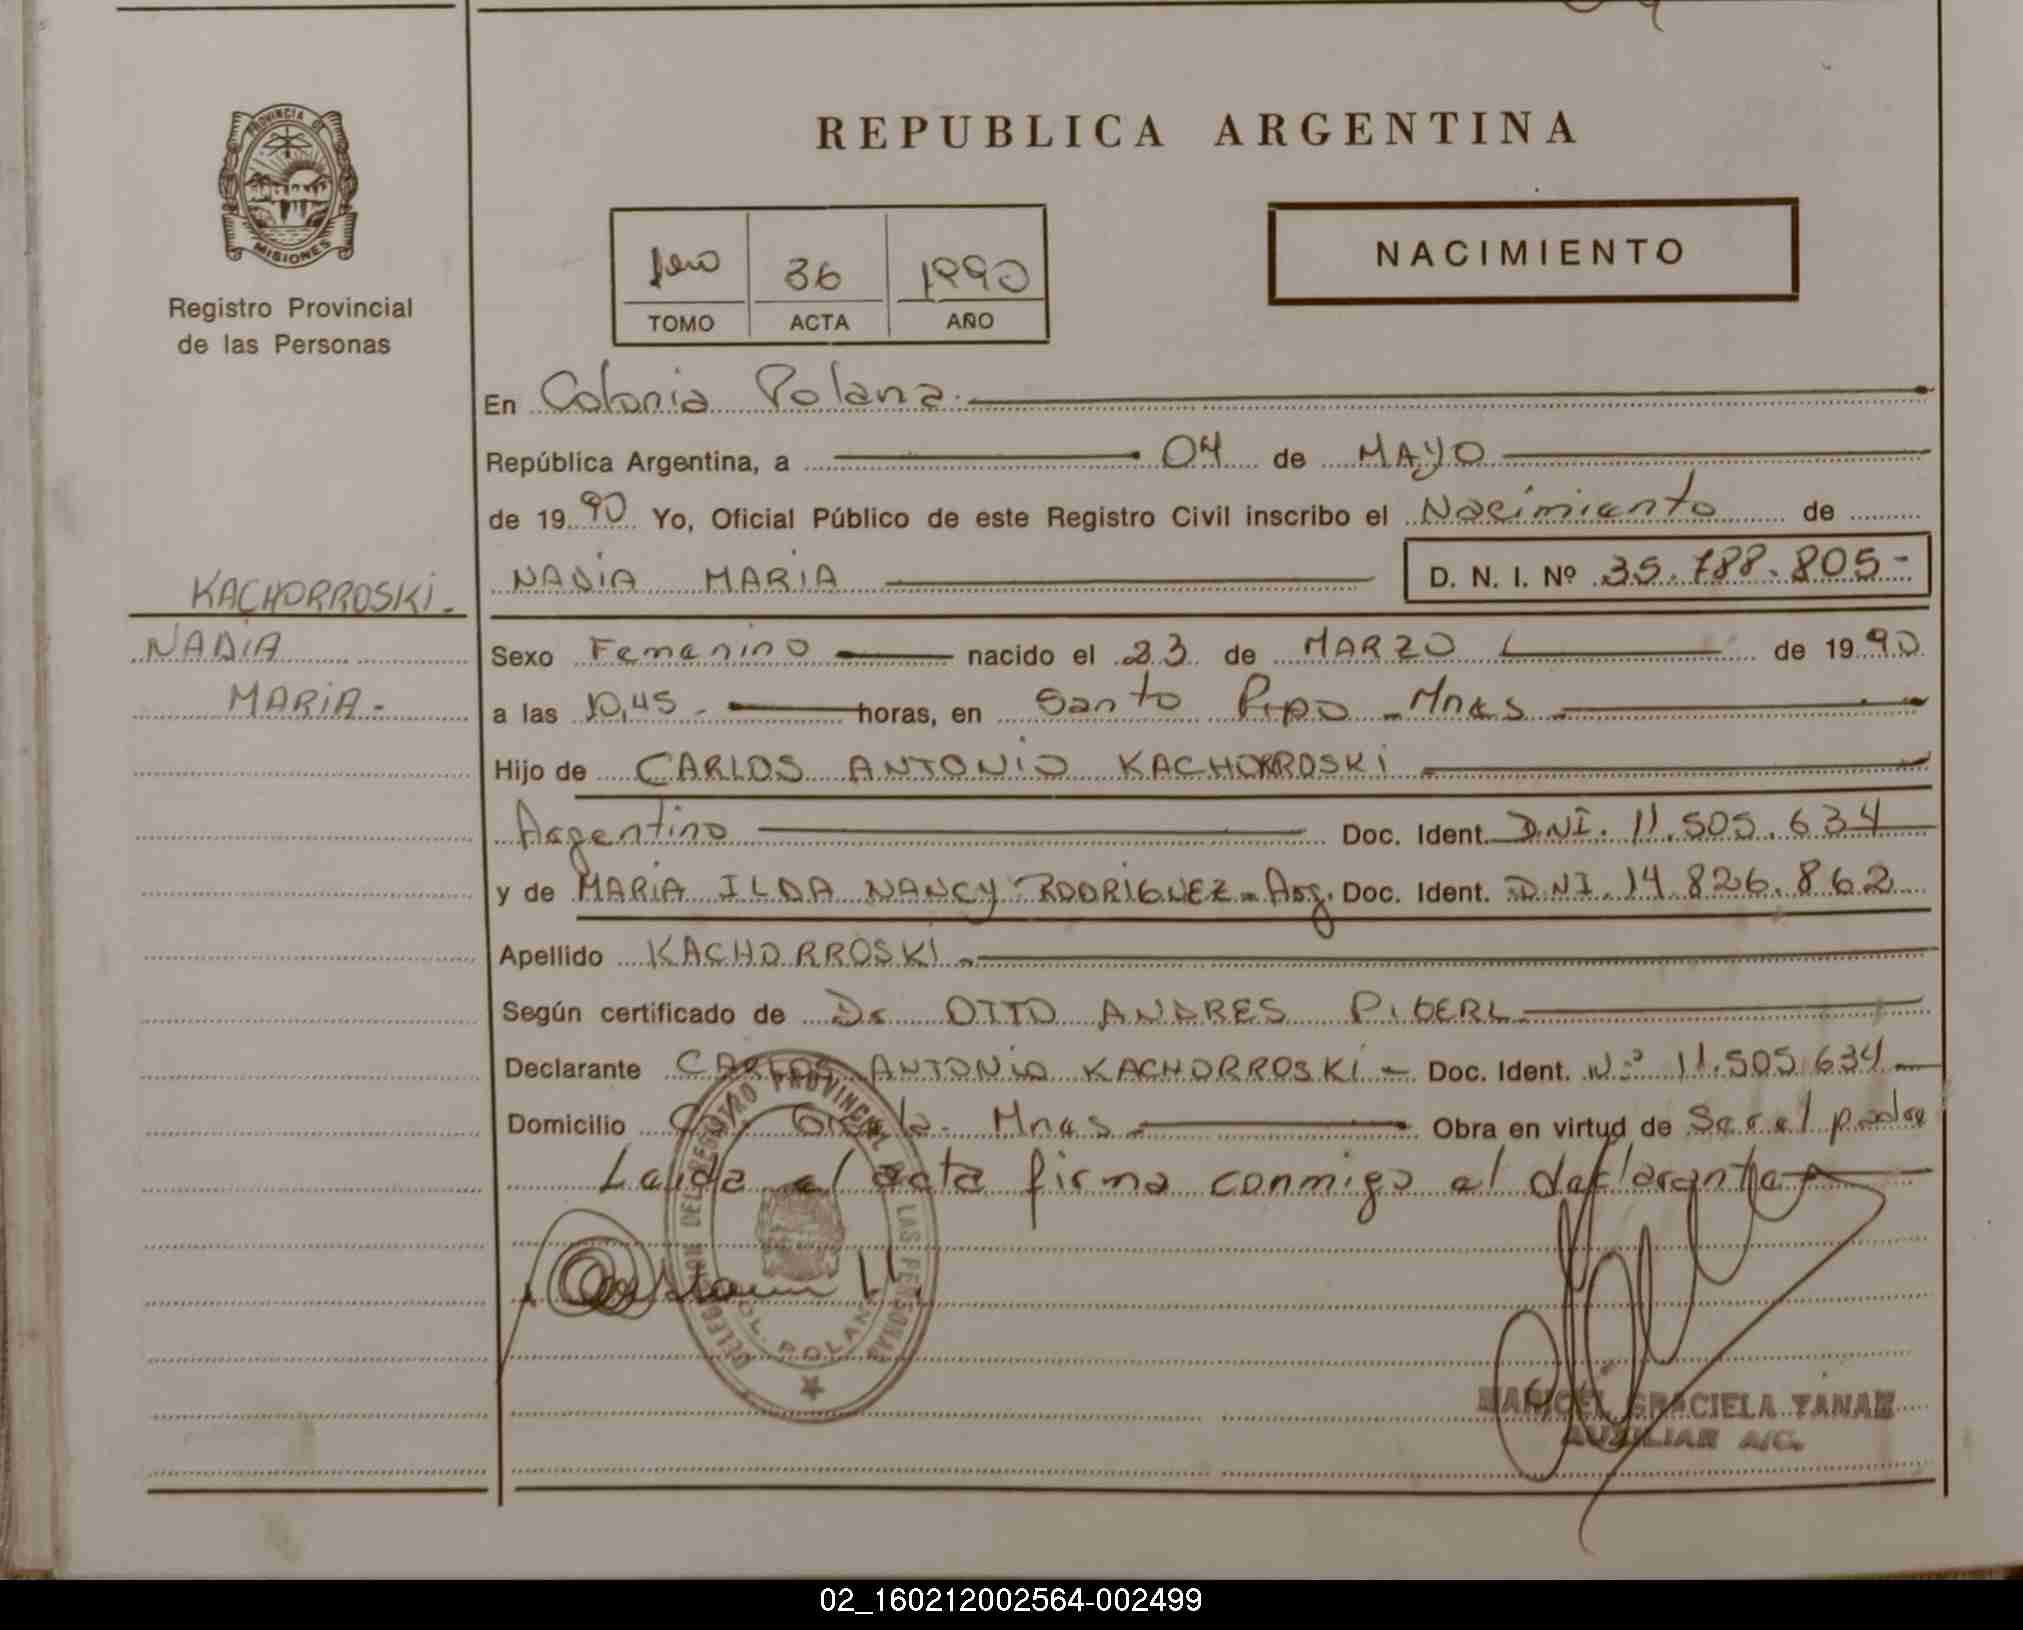 PROVINCIA DE
MISIONES
Registro Provincial
de las Personas
REPUBLICA ARGENTINA
1ero 36 1990
TOMO ACTA AÑO
NACIMIENTO
En Colonia Polana.
República Argentina, a 04 de MAYO
de 1990 Yo, Oficial Público de este Registro Civil inscribo el Nacimiento de
NADIA MARIA D. N. I. Nº 35.788.805-
KACHORROSKI.
NADIA
MARIA-
Sexo Femenino nacido el 23 de MARZO de 1990
a las 10,45- horas, en Santo Pipo - Mnes
Hijo de CARLOS ANTONIO KACHORROSKI
Argentino Doc. Ident. DNI. 11.505.634
y de MARIA ILDA NANCY RODRIGUEZ - Arg. Doc. Ident. DNI. 14.826.862
Apellido KACHORROSKI.
Según certificado de Dr OTTO ANDRES
Declarante CARLOS ANTONIO KACHORROSKI - Doc. Ident. Nº 11.505.634
Domicilio Mnes Obra en virtud de Ser el padre
Leida el acta firma conmigo el declarante
DELEGACION DEL REGISTRO PROVINCIAL DE LAS PERSONAS
COL. POLANA
MARICEL GRACIELA
AUXILIAR A/C.
02_160212002564-002499